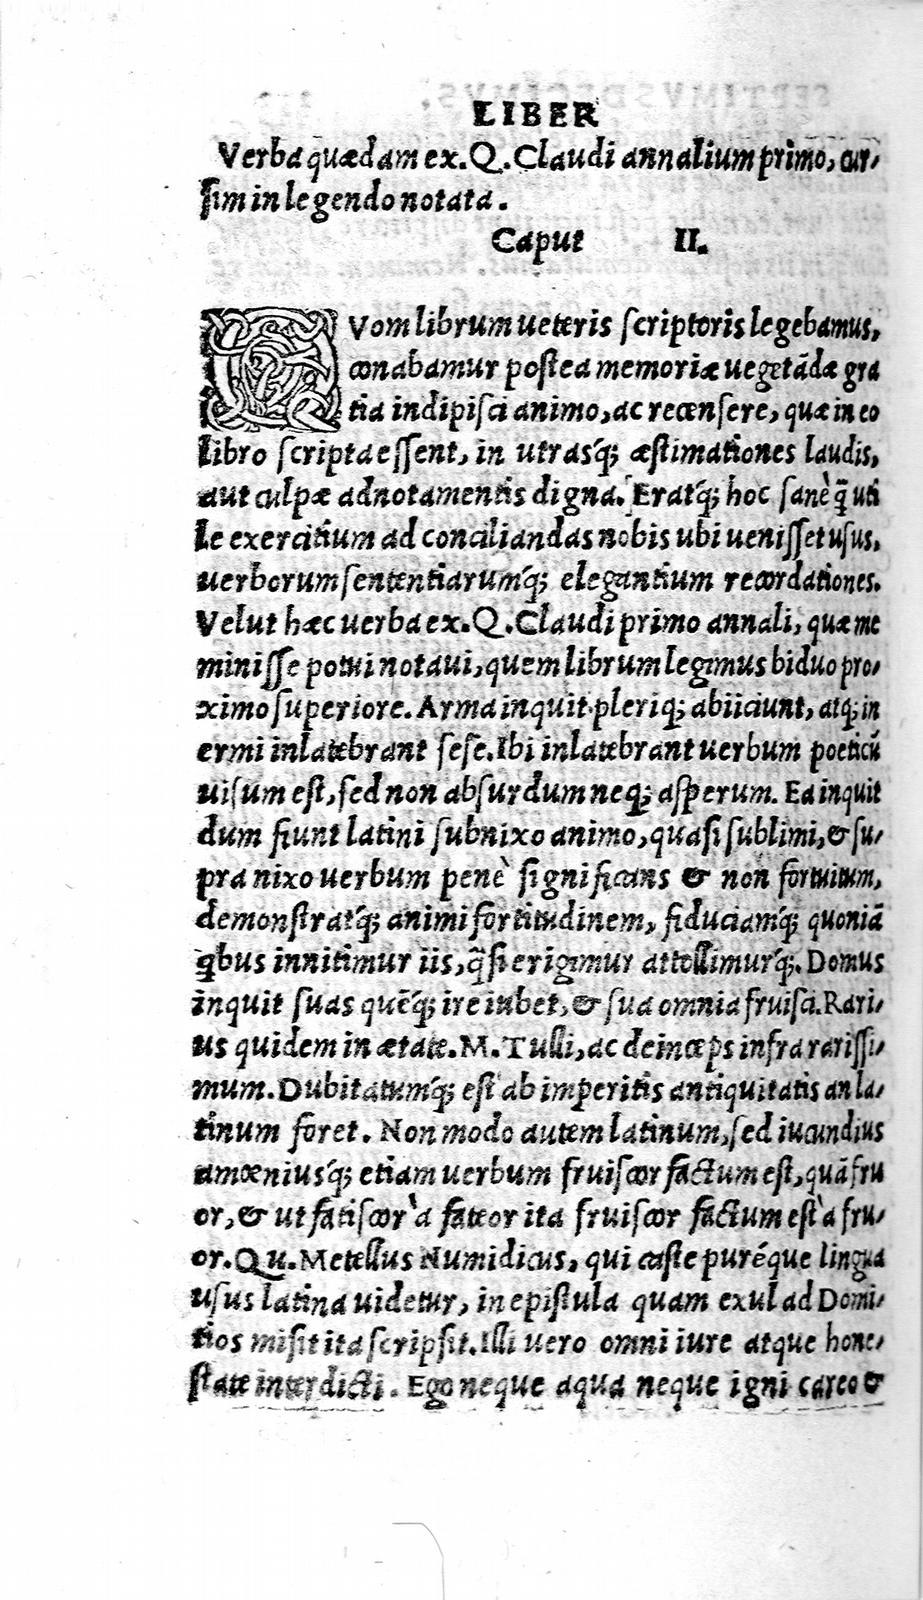 LIBER
Verba quædam ex. Q. Claudi annalium primo, cur-
sim in legendo notata.
Caput II.
QVom librum ueteris scriptoris legebamus,
conabamur postea memoriæ uegetādæ gra
tia indipisci animo, ac recensere, quæ in eo
libro scripta essent, in utrasq́; æstimationes laudis,
aut culpæ adnotamentis digna. Eratq́; hoc sanè q̃ uti
le exercitium ad conciliandas nobis ubi uenisset usus,
uerborum sententiarumq́; elegantium recordationes.
Velut hæc uerba ex. Q. Claudi primo annali, quæ me
minisse potui notaui, quem librum legimus biduo pro-
ximo superiore. Arma inquit pleriq; abiiciunt, atq; in
ermi inlatebrant sese. Ibi inlatebrant uerbum poeticũ
uisum est, sed non absurdum neq; asperum. Ea inquit
dum fiunt latini subnixo animo, quasi sublimi, & su-
pra nixo uerbum penè significans & non fortuitum,
demonstratq́; animi fortitudinem, fiduciamq́; quoniã
q̃bus innitimur iis, q̃si erigimur attollimurq́;. Domus
inquit suas quẽq́; ire iubet, & sua omnia fruisci. Rari-
us quidem in ætate. M. Tulli, ac deinceps infra rarissi-
mum. Dubitatumq́; est ab imperitis antiquitatis an la-
tinum foret. Non modo autem latinum, sed iucundius
amœniusq́; etiam uerbum fruiscor factum est, quã fru
or, & ut fatiscor à fateor ita fruiscor factum est à fru-
or. Qu. Metellus Numidicus, qui caste puréque lingua
usus latina uidetur, in epistula quam exul ad Domi-
tios misit ita scripsit. Illi uero omni iure atque hone-
state interdicti. Ego neque aqua neque igni careo &